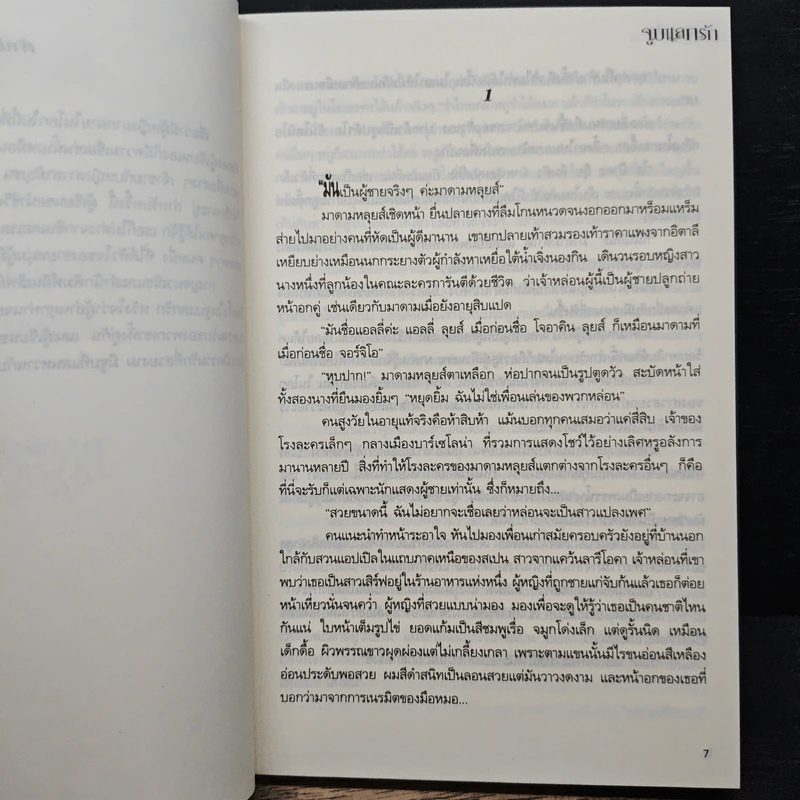 จูบแลกรัก
1
"มันเป็นผู้ชายจริงๆ ค่ะมาดามหลุยส์"
มาดามหลุยส์เชิดหน้า ยื่นปลายคางที่ลืมโกนหนวดจนงอกออกมาหร็อมแหร็ม
ส่ายไปมาอย่างคนที่หัดเป็นผู้ดีมานาน เขายกปลายเท้าสวมรองเท้าราคาแพงจากอิตาลี
เหยียบย่างเหมือนนกกระยางตัวผู้กำลังหาเหยื่อใต้น้ำเจิ่งนองกิน เดินวนรอบหญิงสาว
นางหนึ่งที่ลูกน้องในคณะละครการันตีด้วยชีวิต ว่าเจ้าหล่อนผู้นี้เป็นผู้ชายปลูกถ่าย
หน้าอกคู่ เช่นเดียวกับมาดามเมื่อยังอายุสิบแปด
"มันชื่อแอลลี่ค่ะ แอลลี่ ลุยส์ เมื่อก่อนชื่อ โจอาคิน ลุยส์ ก็เหมือนมาดามที่
เมื่อก่อนชื่อ จอร์จิโอ"
"หุบปาก!" มาดามหลุยส์ตาเหลือก ห่อปากจนเป็นรูปตูดวัว สะบัดหน้าใส่
ทั้งสองนางที่ยืนมองยิ้มๆ "หยุดยิ้ม ฉันไม่ใช่เพื่อนเล่นของพวกหล่อน"
คนสูงวัยในอายุแท้จริงคือห้าสิบห้า แม้นบอกทุกคนเสมอว่าแค่สี่สิบ เจ้าของ
โรงละครเล็กๆ กลางเมืองบาร์เซโลน่า ที่รวมการแสดงโชว์ไว้อย่างเลิศหรูอลังการ
มานานหลายปี สิ่งที่ทำให้โรงละครของมาดามหลุยส์แตกต่างจากโรงละครอื่นๆ ก็คือ
ที่นี่จะรับก็แต่เฉพาะนักแสดงผู้ชายเท่านั้น ซึ่งก็หมายถึง...
"สวยขนาดนี้ ฉันไม่อยากจะเชื่อเลยว่าหล่อนจะเป็นสาวแปลงเพศ"
คนแนะนำทำหน้าระอาใจ หันไปมองเพื่อนเก่าสมัยครอบครัวยังอยู่ที่บ้านนอก
ใกล้กับสวนแอปเปิลในแถบภาคเหนือของสเปน สาวจากแคว้นลารีโอคา เจ้าหล่อนที่เขา
พบว่าเธอเป็นสาวเสิร์ฟอยู่ในร้านอาหารแห่งหนึ่ง ผู้หญิงที่ถูกชายแก่จับก้นแล้วเธอก็ต่อย
หน้าเหี่ยวนั่นจนคว่ำ ผู้หญิงที่สวยแบบน่ามอง มองเพื่อจะดูให้รู้ว่าเธอเป็นคนชาติไหน
กันแน่ ใบหน้าเต็มรูปไข่ ยอดแก้มเป็นสีชมพูเรื่อ จมูกโด่งเล็ก แต่ดูรั้นนิด เหมือน
เด็กดื้อ ผิวพรรณขาวผุดผ่องแต่ไม่เกลี้ยงเกลา เพราะตามแขนนั้นมีไรขนอ่อนสีเหลือง
อ่อนประดับพอสวย ผมสีดำสนิทเป็นลอนสวยแต่มันวาวงดงาม และหน้าอกของเธอที่
บอกว่ามาจากการเนรมิตของมือหมอ...
7